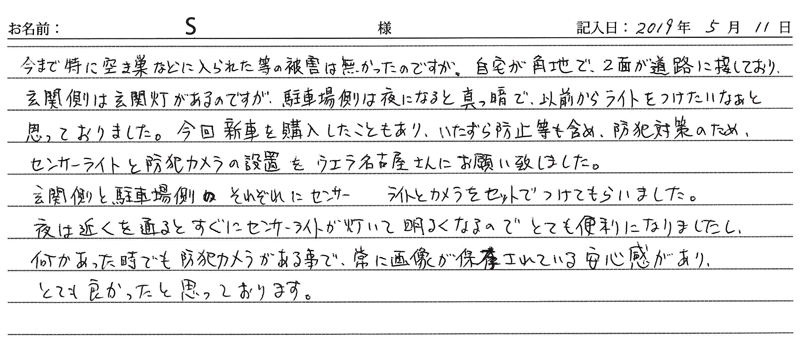 お名前： S 様 記入日：2019年 5月 11日
今まで特に空き巣などに入られた等の被害は無かったのですが、自宅が角地で、2面が道路に接しており、
玄関側は玄関灯があるのですが、駐車場側は夜になると真っ暗で、以前からライトをつけたいなあと
思っておりました。今回新車を購入したこともあり、いたずら防止等も含め、防犯対策のため、
センサーライトと防犯カメラの設置をウエラ名古屋さんにお願い致しました。
玄関側と駐車場側の それぞれにセンサー ライトとカメラをセットでつけてもらいました。
夜は近くを通るとすぐにセンサーライトが灯いて明るくなるのでとても便利になりましたし、
何かあった時でも防犯カメラがある事で、常に画像が保存されている安心感があり、
とても良かったと思っております。